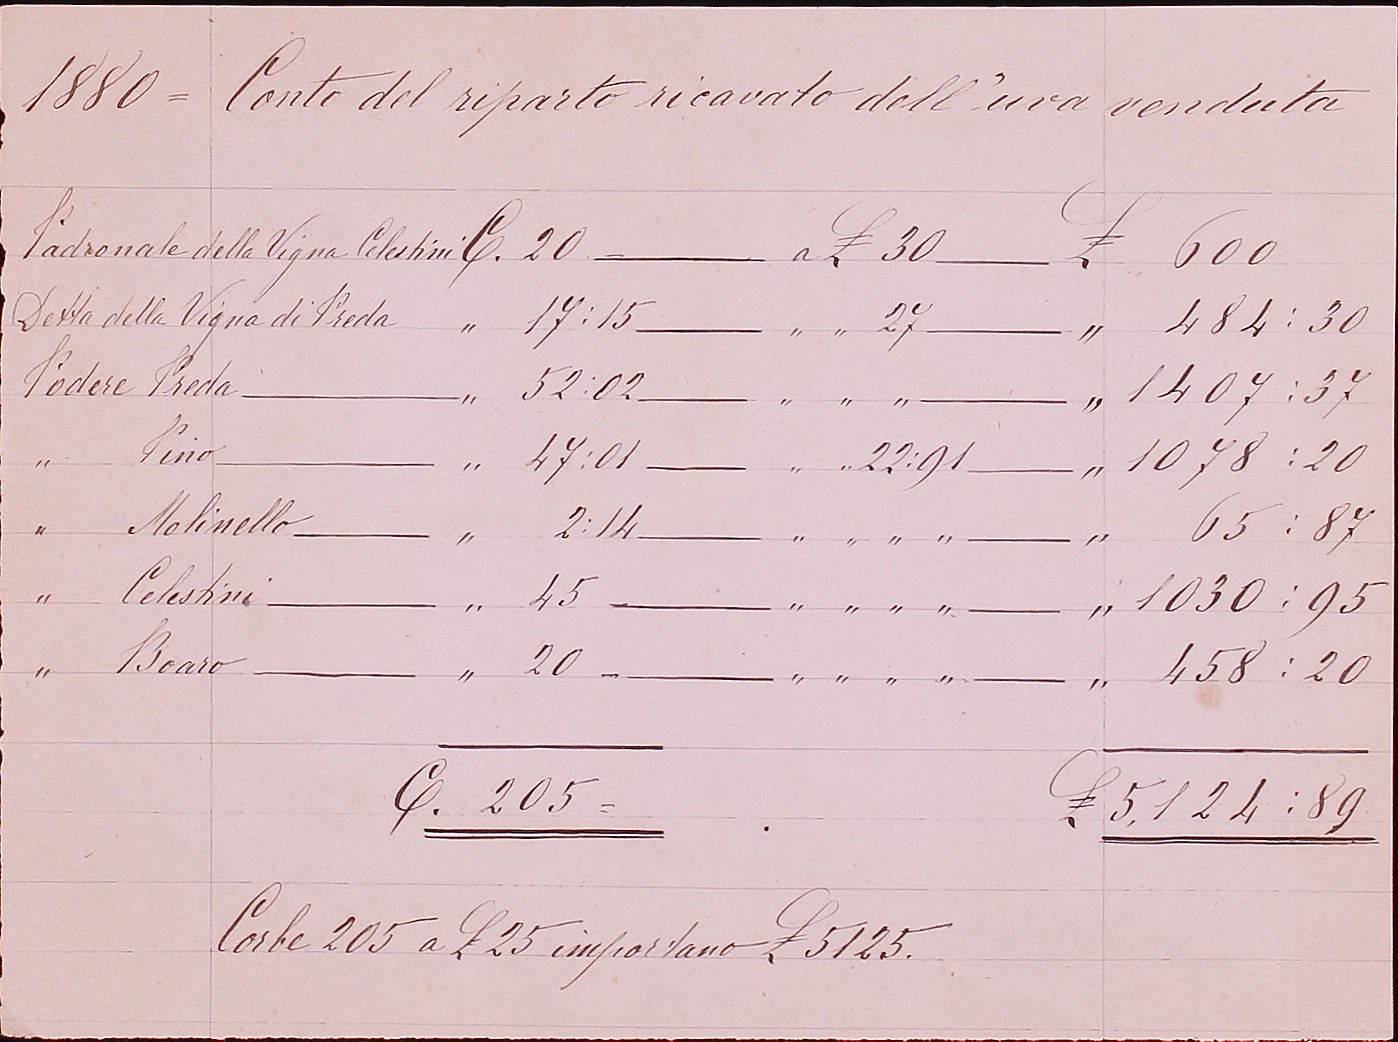 1880 = Conto del riparto ricavato dell'uva venduta
Padronale della Vigna Celestini C. 20 = a £ 30 £ 600
Detta della Vigna di Preda „ 17:15 „ „ 27 „ 484:30
Podere Preda „ 52:02 „ „ „ „ 1407:37
„ Pino „ 47:01 „ „ 22:91 „ 1078:20
„ Molinello „ 2:14 „ „ „ „ „ 65:87
„ Celestini „ 45 „ „ „ „ „ 1030:95
„ Boaro „ 20 „ „ „ „ „ 458:20
C. 205 = £ 5,124:89
Corbe 205 a £ 25 importano £ 5125.